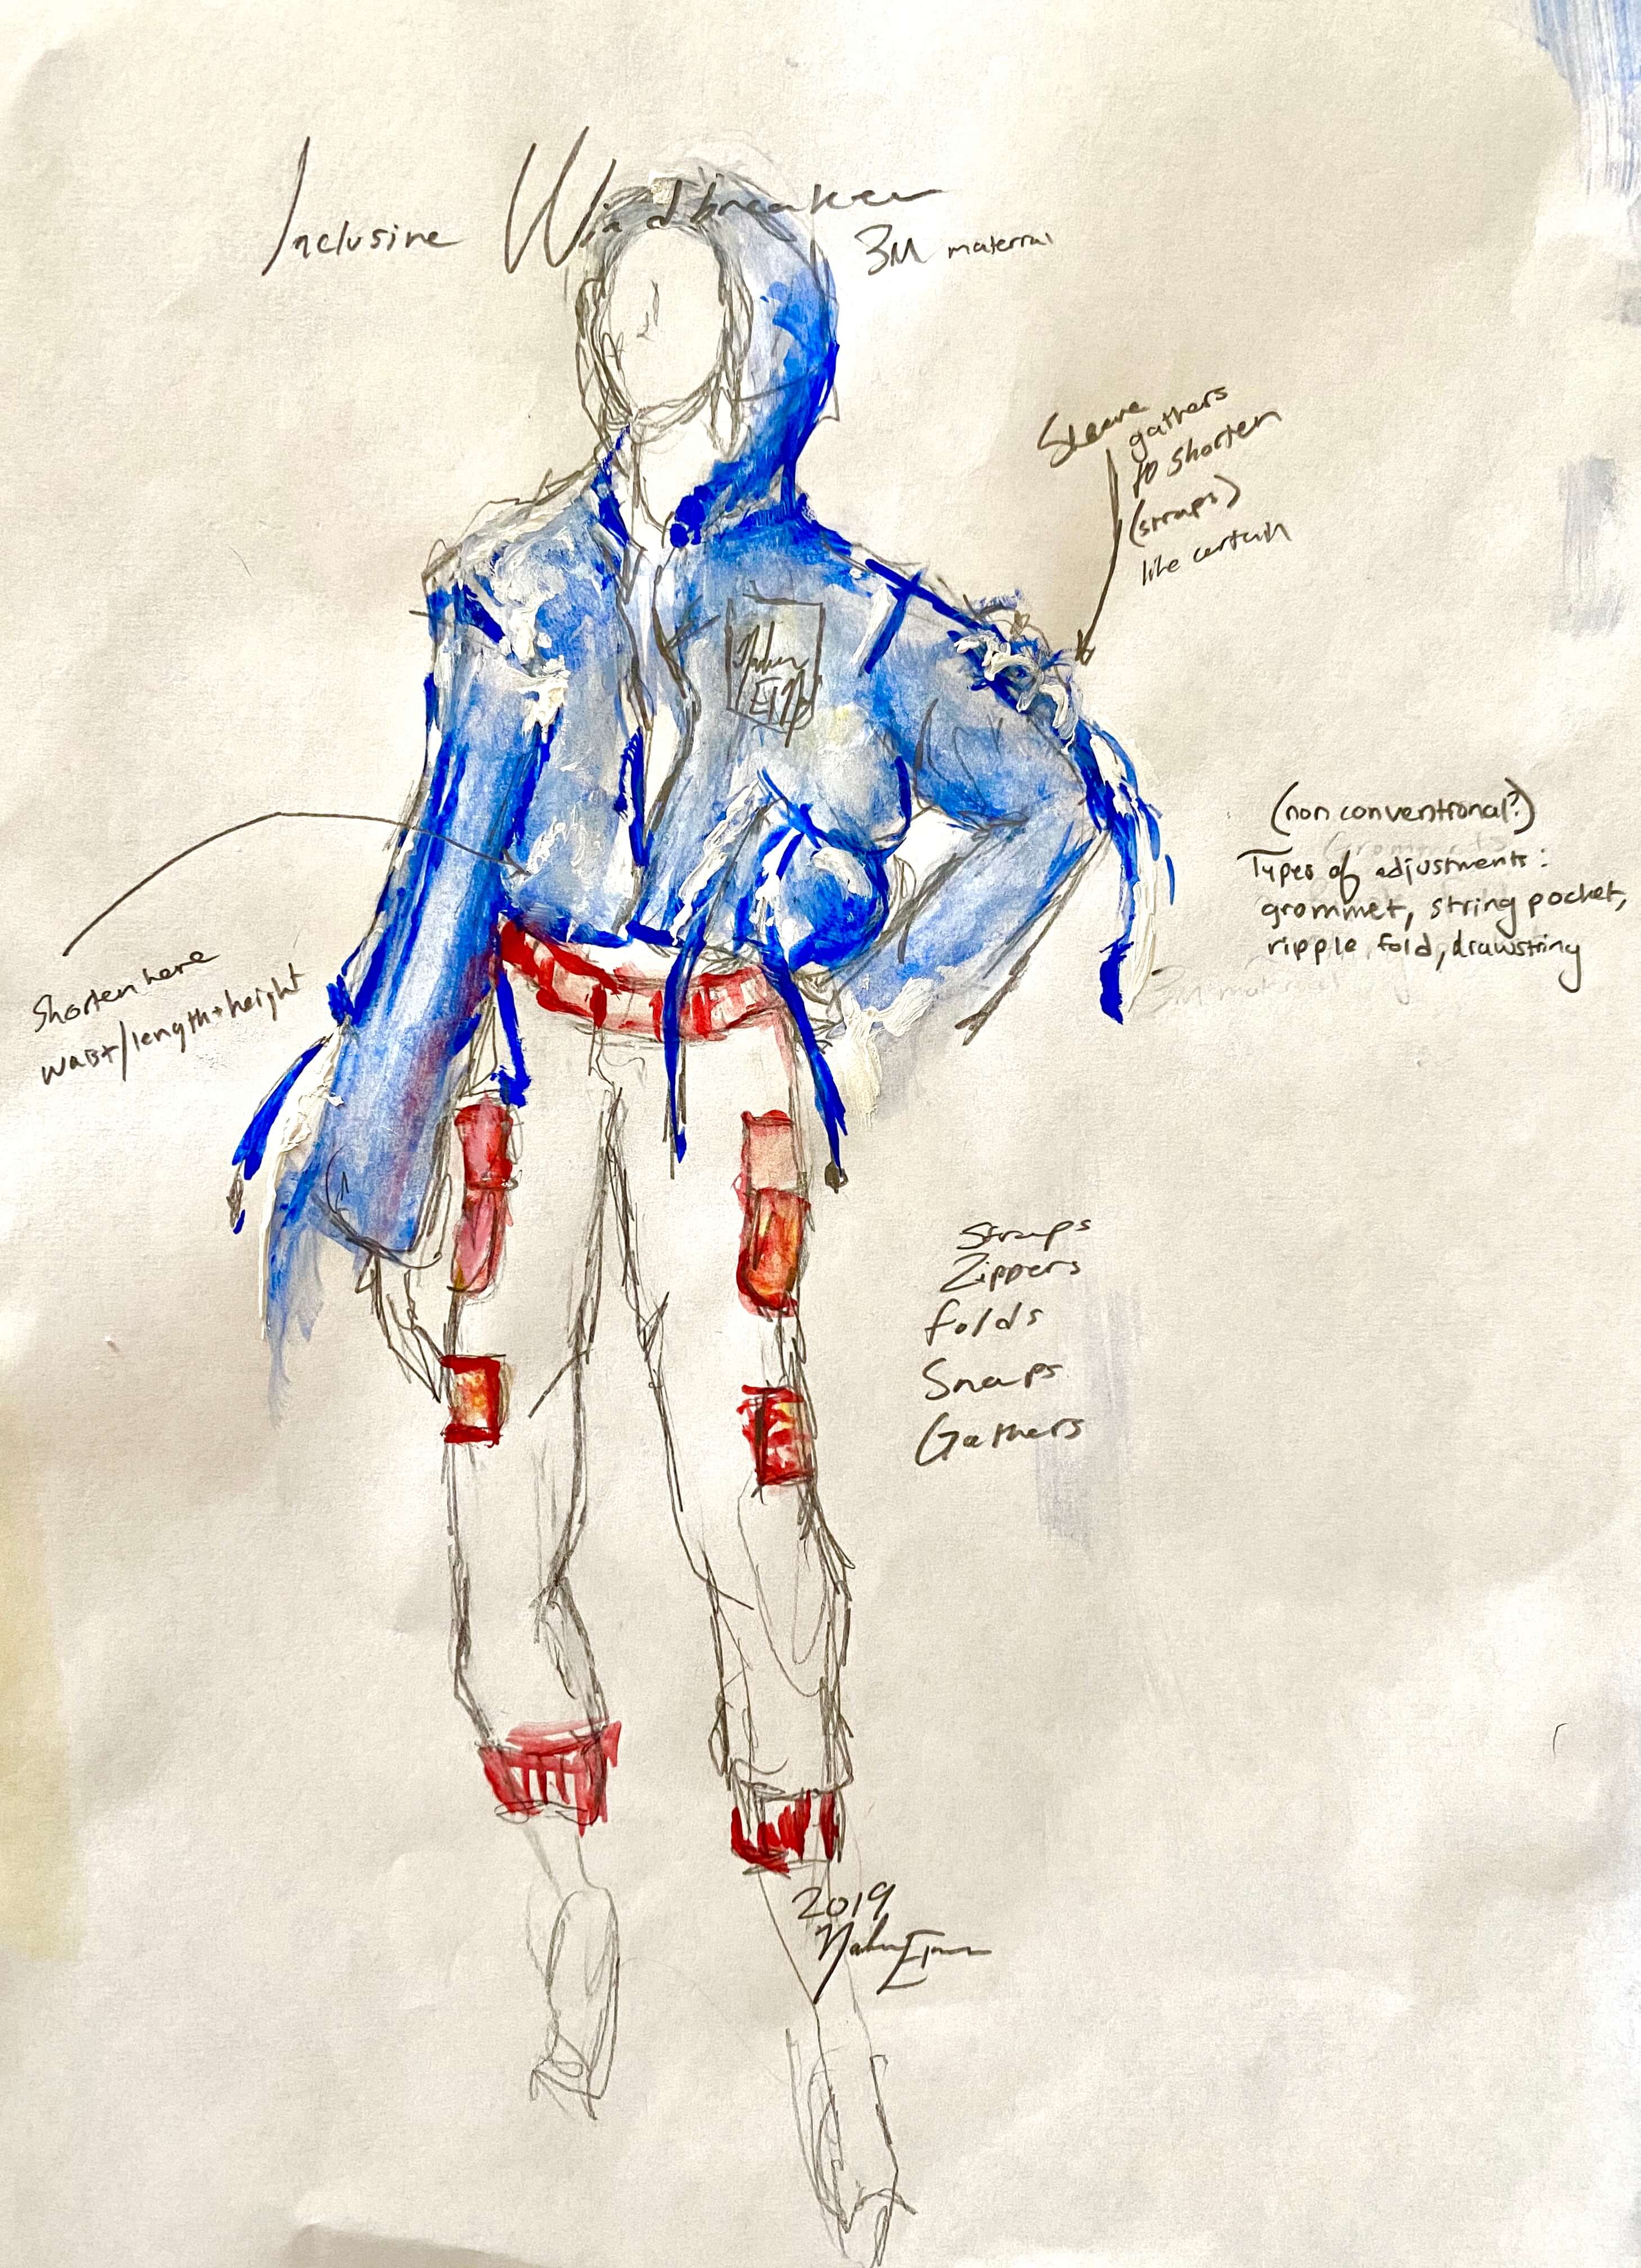 Inclusive Windbreaker
3M material
Sleeve
gathers
to shorten
(straps)
like certain
(non conventional?)
Grommets
Types of adjustments:
grommet, string pocket,
ripple fold, drawstring
3M material
Shorten here
waist/length+height
Straps
Zippers
folds
Snaps
Gathers
2019